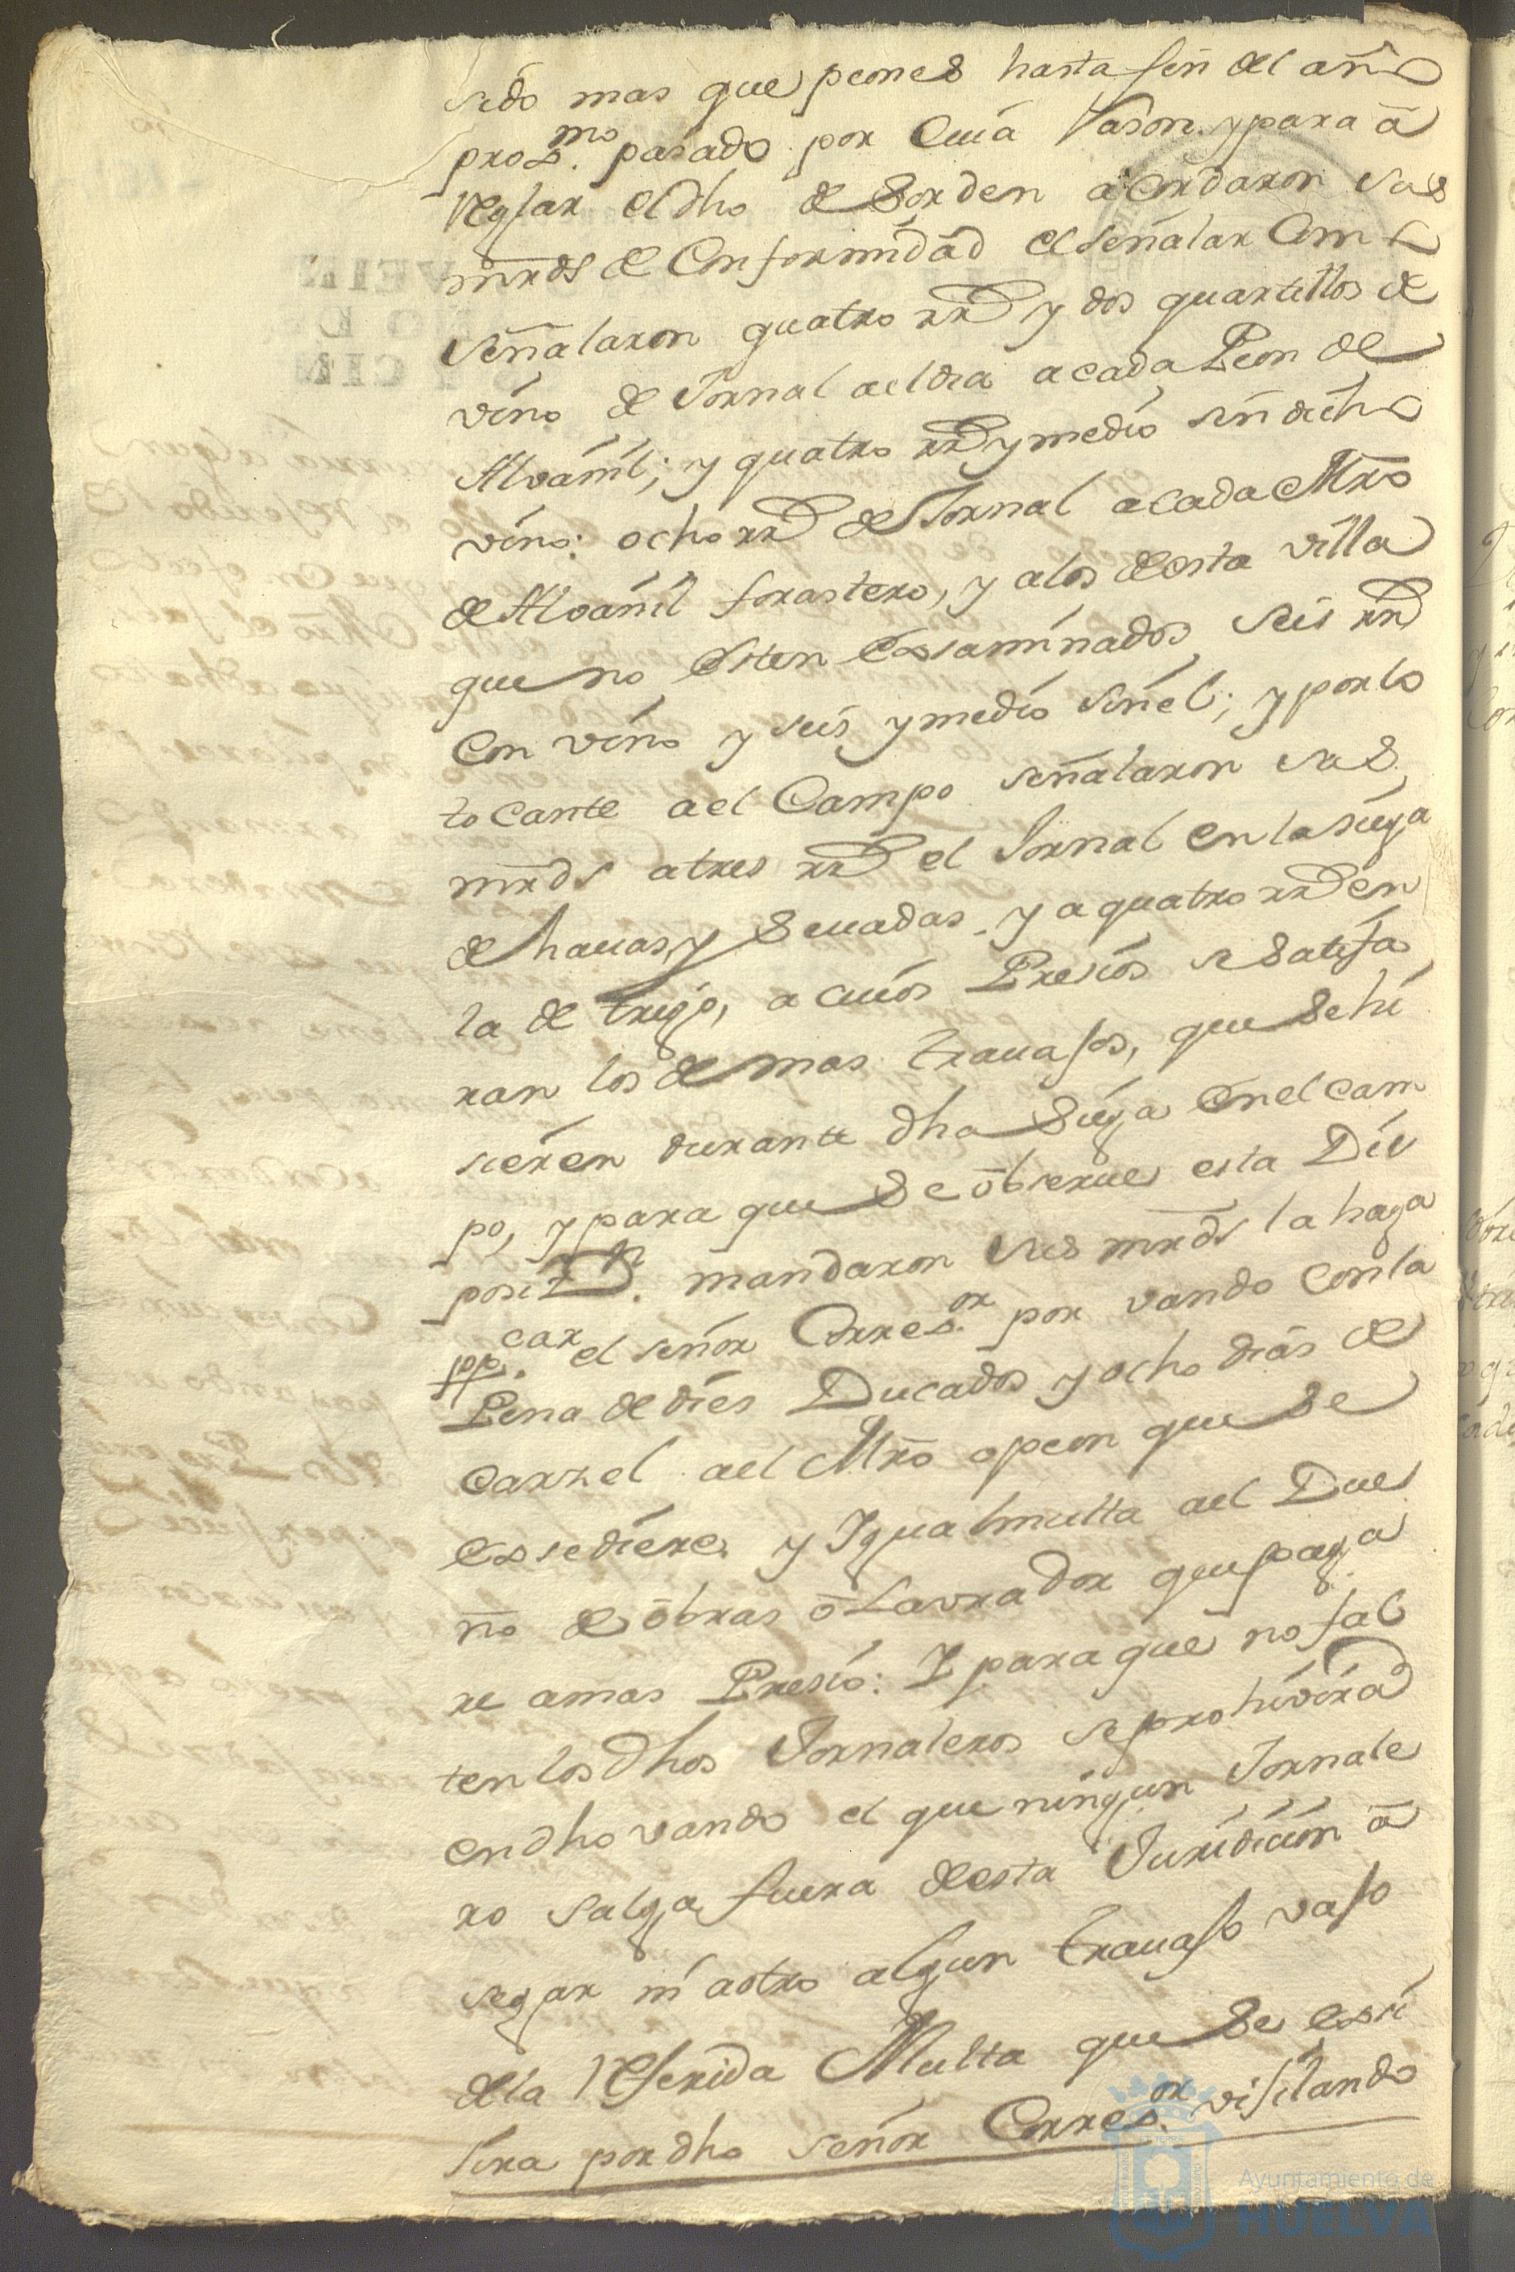 sido mas que peones hasta fin del año
prox.mo pasado por Cuia Rason y para a
Reglar el dho desorden acordaron sus
mrds de Conformidad el señalar Como
señalaron quatro rrs y dos quartillos de
vino de Jornal ael dia acada Peon de
Alvañil; y quatro rrs y medio sin dicho
vino: ocho rrs de Jornal acada Mro
de Alvañil forastero, y alos desta villa
que no esten Exsaminados seis rrs
Con vino y seis y medio sin el; y por lo
tocante ael Campo señalaron sus
mrds atres rrs el Jornal en la siega
de hauas, y Seuadas, y aquatro rrs en
la de trigo, a cuios Presios se Satisfa
ran los demas trauajos, que se hi
sieren durante dha Siega en el cam
po, y para que se obserue esta Dis
posizn. mandaron sus mrds la haga
pp.car el señor Corres.or por vando Con la
Pena de dies Ducados y ocho dias de
Carzel ael Mro opeon que se
exsediere y Igual multa ael Due
ño de obras o Lavrador que paga
re amas Presio: Y para que no fal
ten los dhos Jornaleros se prohivira
en dho vando el que ningun Jornale
ro salga fuera desta Juridicion a
segar ni aotro algun trauajo vajo
dela Referida Multa que se exsi
jira por dho señor Corres.or visitando
Ayuntamiento de
HUELVA